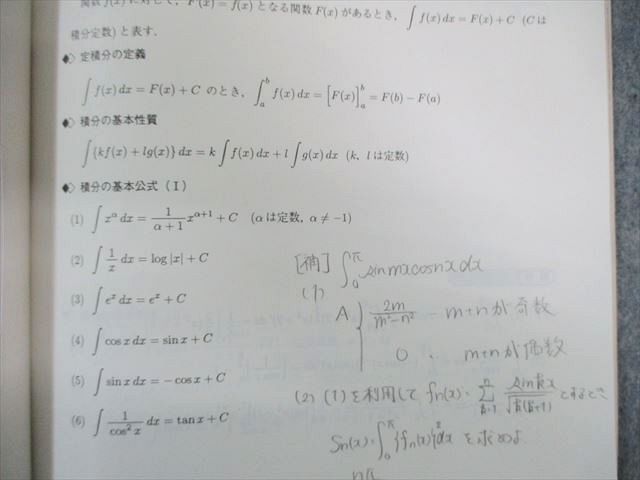 関数 f(x) に対して, F'(x) = f(x) となる関数 F(x) があるとき, ∫ f(x) dx = F(x) + C (C は
積分定数) と表す.
定積分の定義
∫ f(x) dx = F(x) + C のとき, ∫_a^b f(x) dx = [F(x)]_a^b = F(b) − F(a)
積分の基本性質
∫ {kf(x) + lg(x)} dx = k ∫ f(x) dx + l ∫ g(x) dx (k, l は定数)
積分の基本公式 (I)
(1) ∫ x^α dx = 1/(α+1) x^(α+1) + C (α は定数, α ≠ −1)
(2) ∫ 1/x dx = log|x| + C
(3) ∫ e^x dx = e^x + C
(4) ∫ cos x dx = sin x + C
(5) ∫ sin x dx = − cos x + C
(6) ∫ 1/cos² x dx = tan x + C
[補] ∫_0^π sin mx cos nx dx
(1)
A { 2m/(m²−n²) … m+n が奇数
0 , m+n が偶数
(2) (1)を利用して fn(x) = Σ_{k=1}^n sin kx/√(k(k+1)) とするとき
Sn(x) = ∫_0^π {fn(x)}² dx を求めよ
nπ